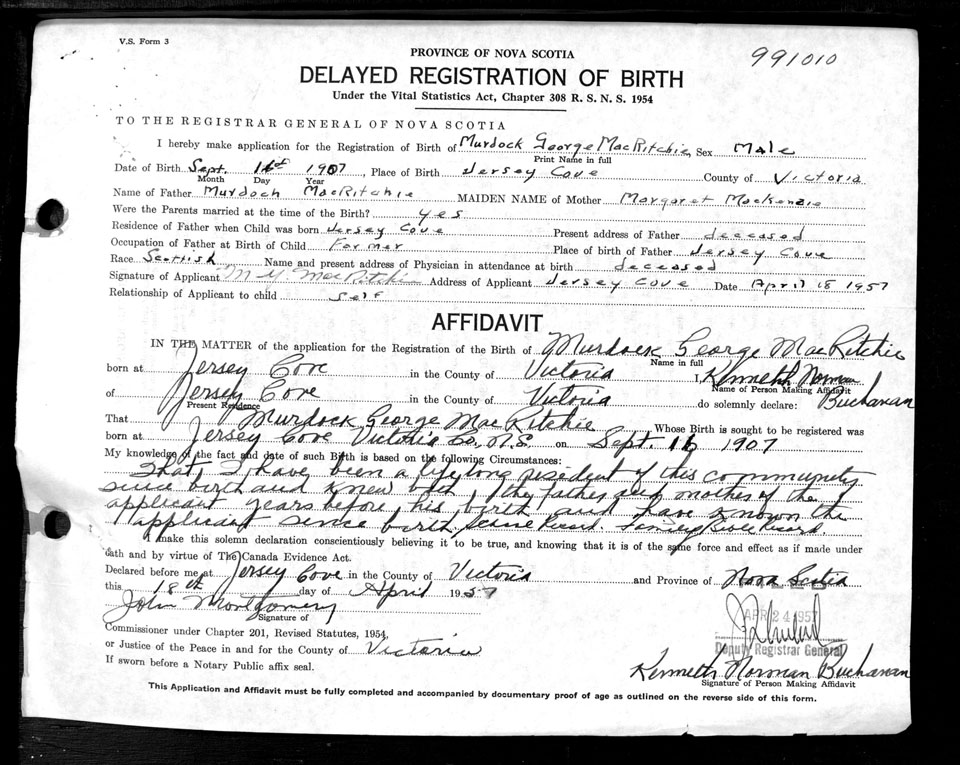 V.S. Form 3
PROVINCE OF NOVA SCOTIA
991010
DELAYED REGISTRATION OF BIRTH
Under the Vital Statistics Act, Chapter 308 R. S. N. S. 1954
TO THE REGISTRAR GENERAL OF NOVA SCOTIA
I hereby make application for the Registration of Birth of Murdock George MacRitchie Sex Male
Print Name in full
Date of Birth Sept. 16 1907, Place of Birth Jersey Cove County of Victoria
Month Day Year
Name of Father Murdoch MacRitchie MAIDEN NAME of Mother Margaret MacKenzie
Were the Parents married at the time of the Birth? yes
Residence of Father when Child was born Jersey Cove Present address of Father deceased
Occupation of Father at Birth of Child Farmer Place of birth of Father Jersey Cove
Race Scottish Name and present address of Physician in attendance at birth deceased
Signature of Applicant M G MacRitchie Address of Applicant Jersey Cove Date April 18 1957
Relationship of Applicant to child self
AFFIDAVIT
IN THE MATTER of the application for the Registration of the Birth of Murdock George MacRitchie
Name in full
born at Jersey Cove in the County of Victoria I, Kenneth Norman
Name of Person Making Affidavit
of Jersey Cove in the County of Victoria do solemnly declare: Buchanan
Present Residence
That Murdock George MacRitchie Whose Birth is sought to be registered was
born at Jersey Cove Victoria Co. N.S. on Sept. 16 1907
My knowledge of the fact and date of such Birth is based on the following Circumstances:
That, I have been a lifelong resident of this community
since birth and knew both the father and mother of the
applicant years before his birth and have known the
applicant since birth. Family Bible Record.
I make this solemn declaration conscientiously believing it to be true, and knowing that it is of the same force and effect as if made under
oath and by virtue of The Canada Evidence Act.
Declared before me at Jersey Cove in the County of Victoria and Province of Nova Scotia
this 18th day of April 1957
John Montgomery
Signature of
APR 24 1957
Commissioner under Chapter 201, Revised Statutes, 1954,
Deputy Registrar General
or Justice of the Peace in and for the County of Victoria
If sworn before a Notary Public affix seal.
Kenneth Norman Buchanan
Signature of Person Making Affidavit
This Application and Affidavit must be fully completed and accompanied by documentary proof of age as outlined on the reverse side of this form.